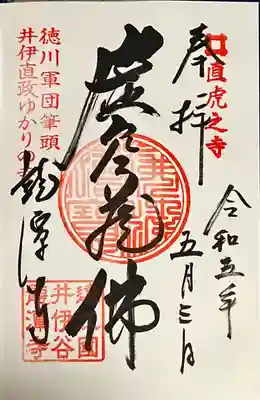 直虎之寺
奉拝
令和五年
五月三日
虚空蔵佛
徳川軍団筆頭
井伊直政ゆかりの寺
龍潭寺
遠國
井伊谷
龍潭寺